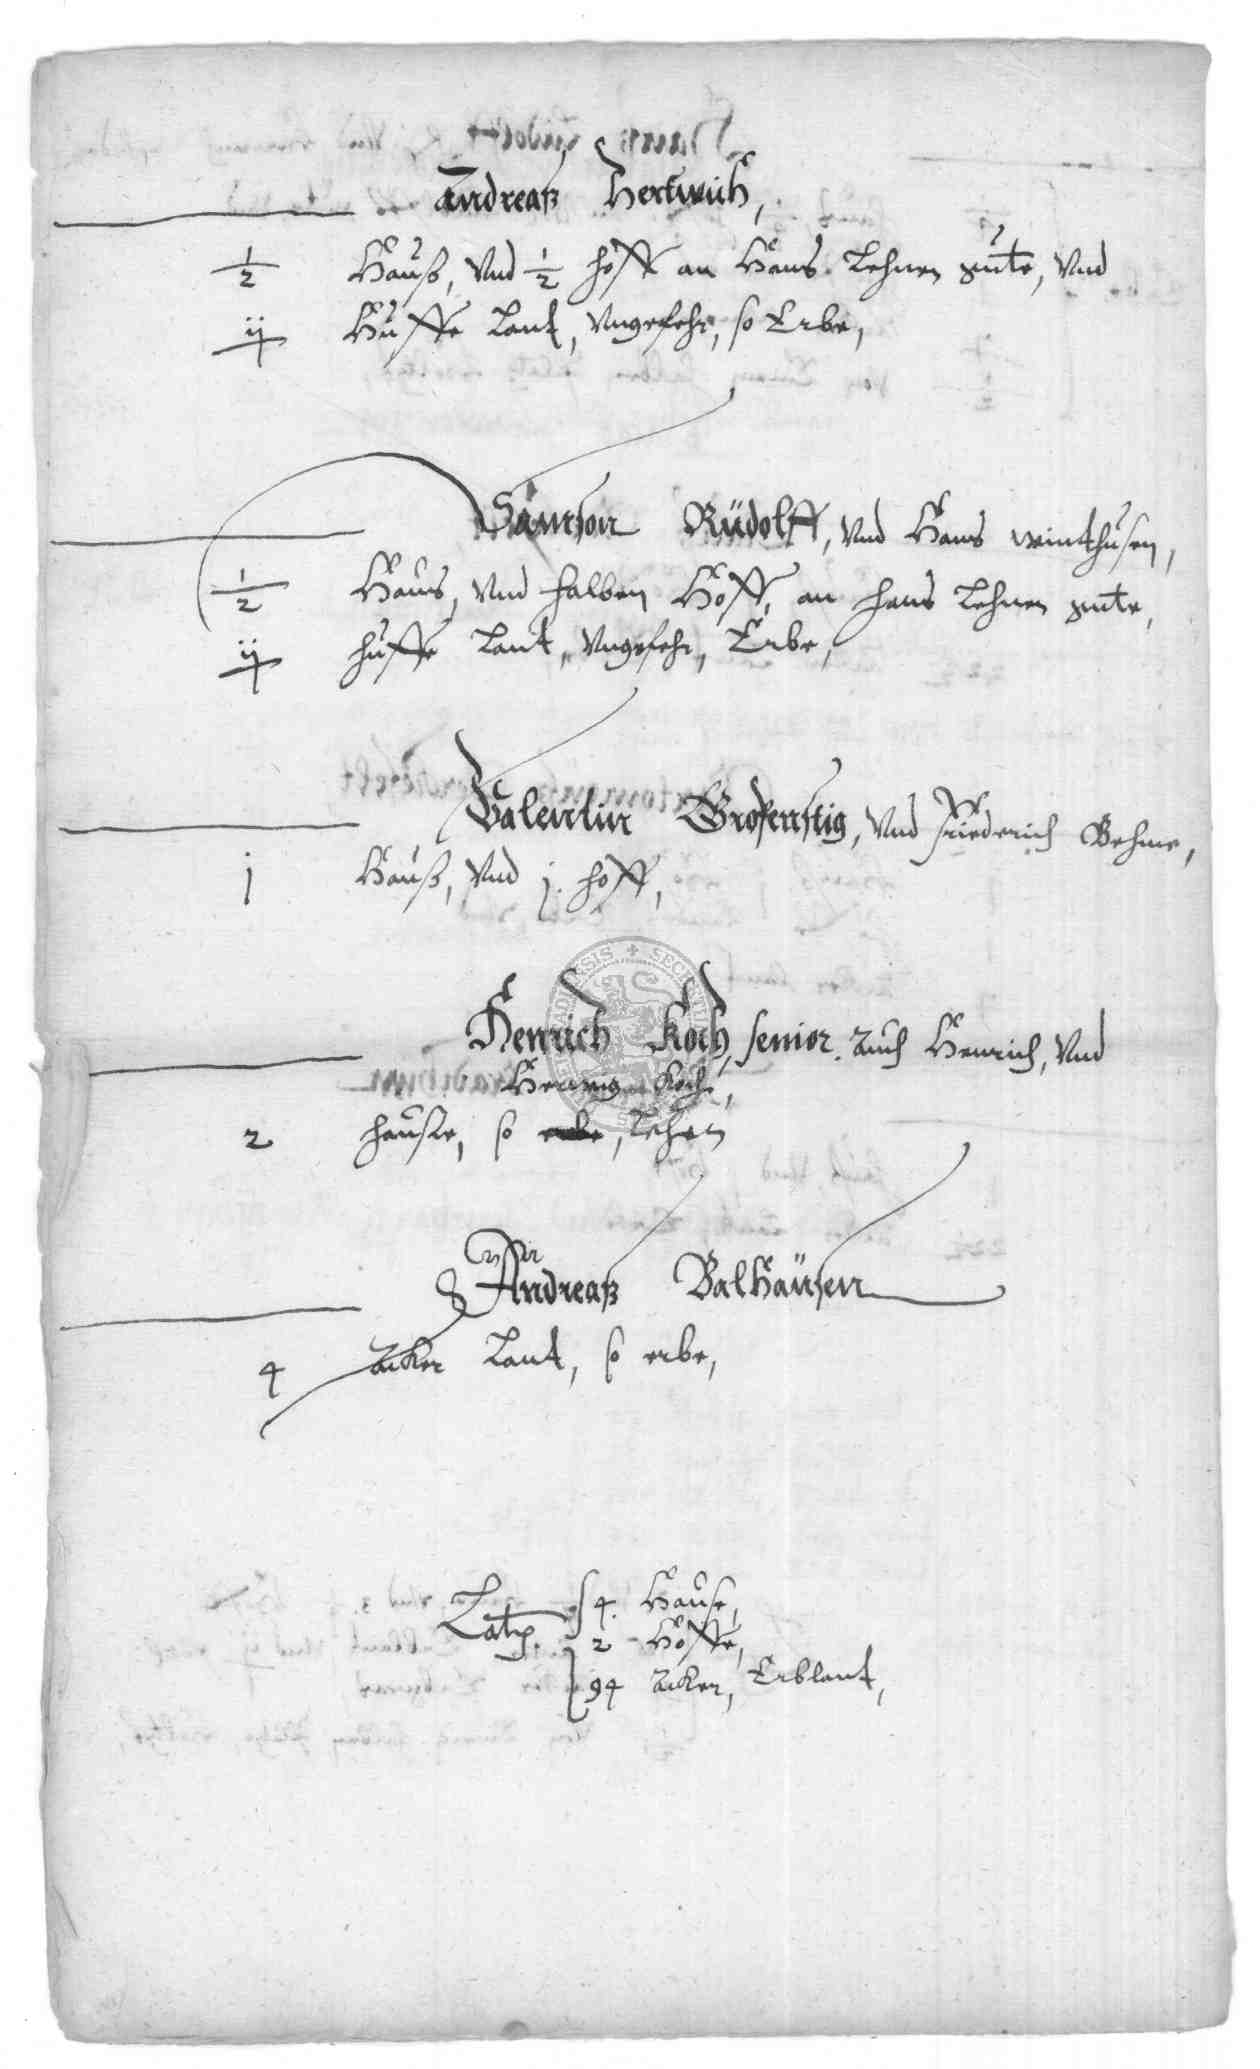 Andreaß Hertwich,
1/2 Hauß, Vnd 1/2 hoff an Hans Lehnen gute, Vnd
ij Huffe Lant, Vngefehr, so Erbe,
Samson Rüdolff, Vnd Hans winthusen,
1/2 Haus, Vnd halben Hoff, an hans Lehnen gute,
ij huffe Lant, Vngefehr, Erbe,
Valentin Großenstig, Vnd Friederich Behme,
j Hauß, Vnd j. hoff,
Henrich Koch, senior. auch Henrich, Vnd
Herwig Koche,
2 heuser, so erbe, Lehen
Andreaß Balhausen
4 acker Lant, so erbe,
Latus. 4. Hause,
2 Höffe,
94 acker, Erblant,